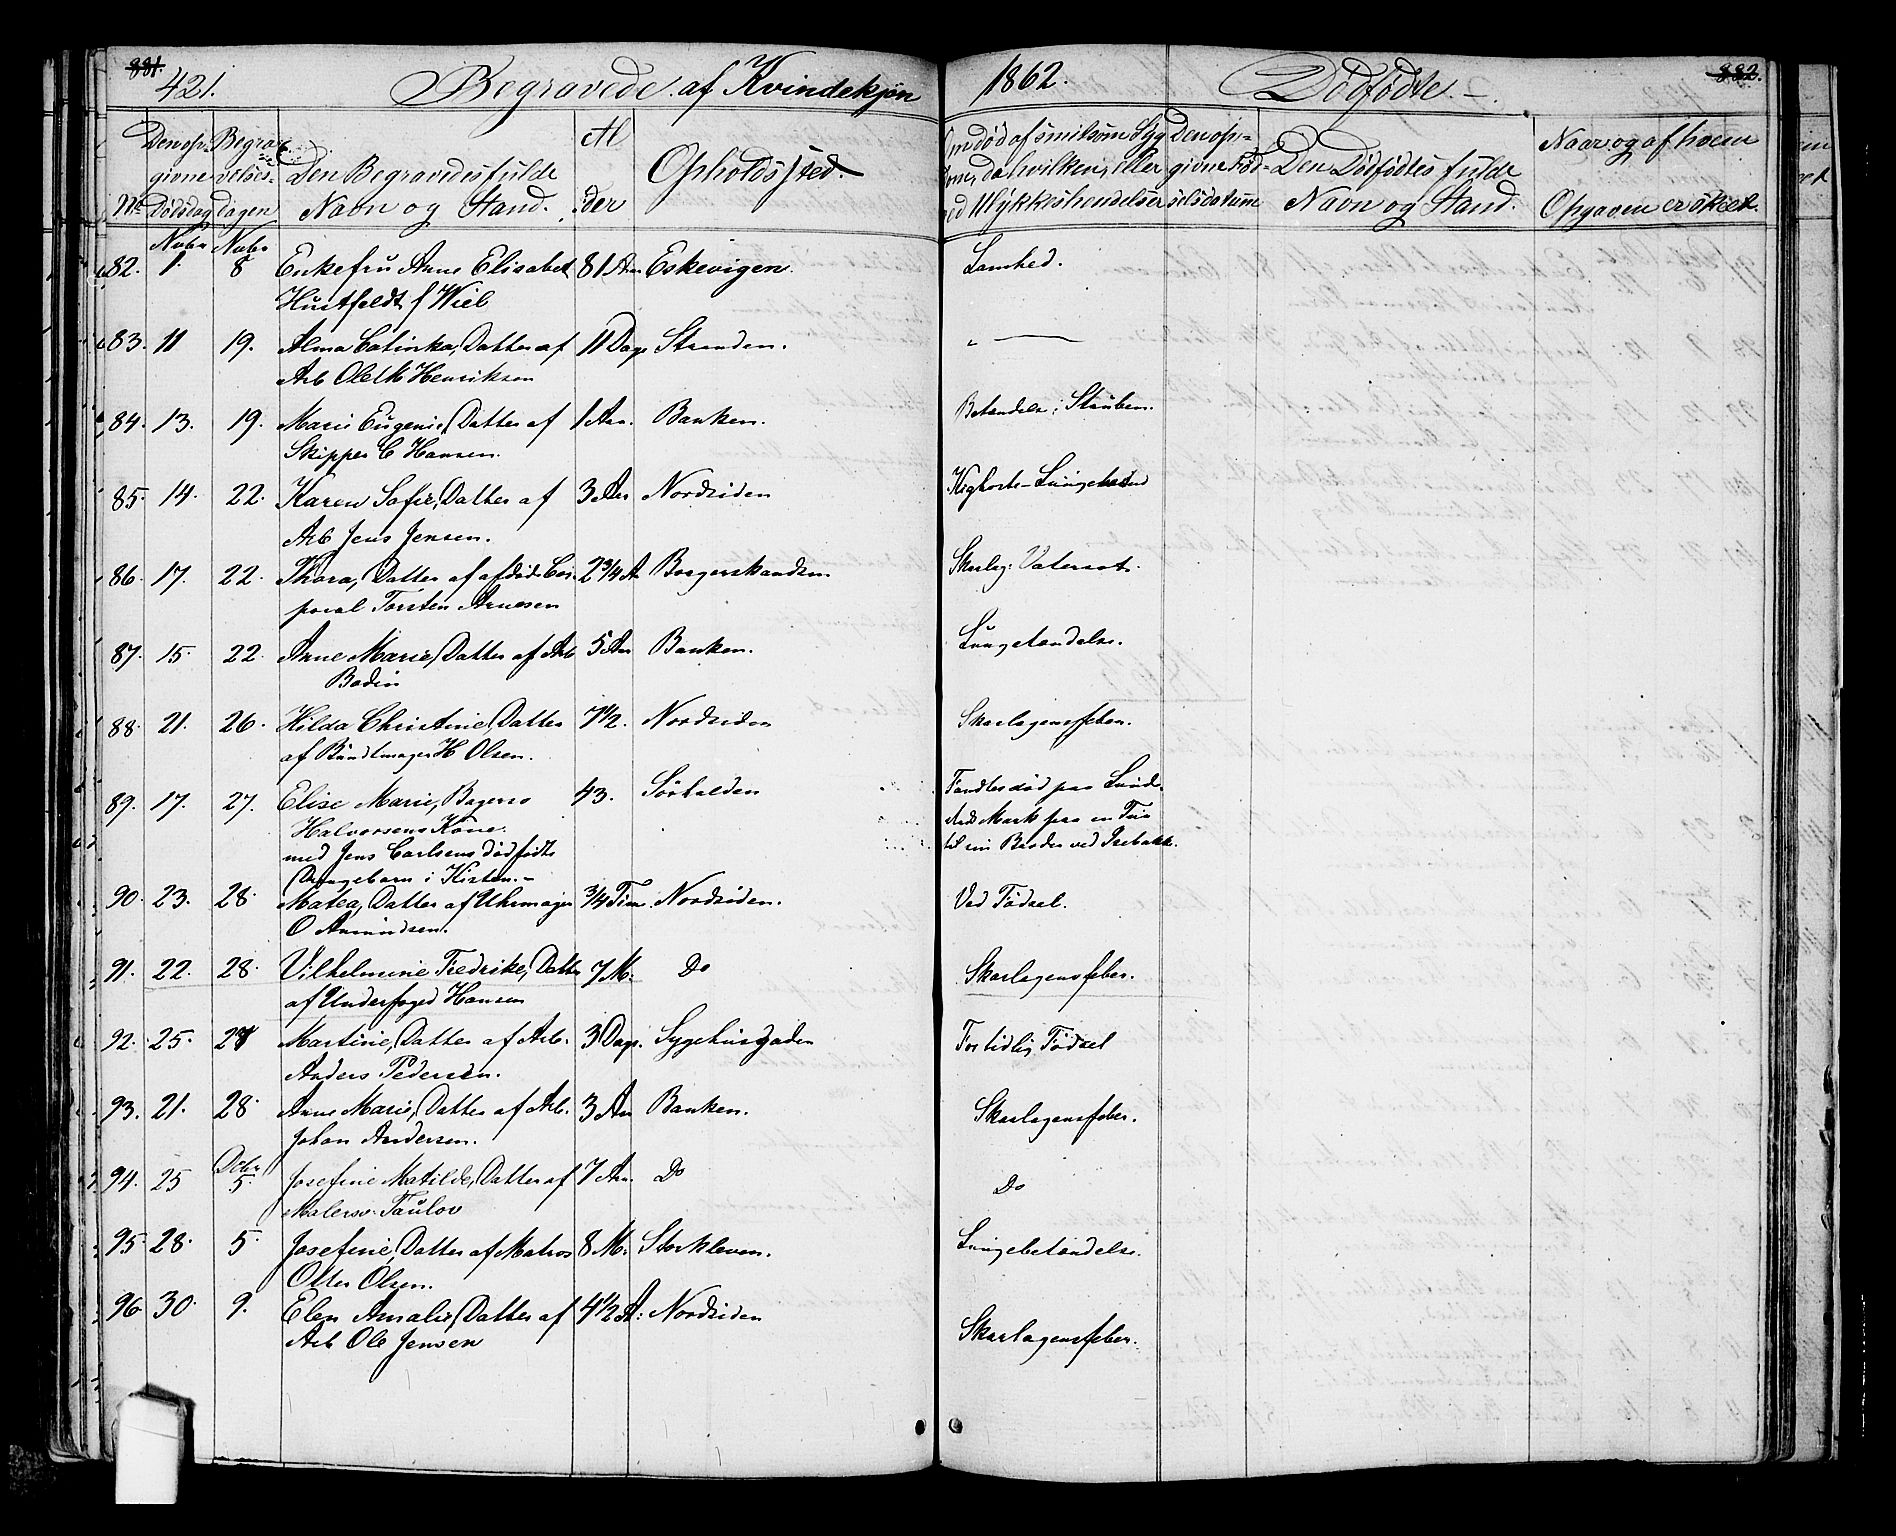 881.
421.
Begravede af Kvindekjøn
1862.
Dødfødte.
882.
No
Den opgivne Dødsdag
Begravelsesdagen
Den Begravedes fulde
Navn og Stand.
Alder
Opholdssted.
Om død af smitsom Syg
dom, da hvilken, eller
ved Ulykkeshændelser
Den opgivne Fødselsdatum
Den Dødfødtes fulde
Navn og Stand.
Naar og af hvem
Opgaven er skeet.
Novbr Novbr
82. 1. 8 Enkefru Anne Elisabet 81 Aar Eskevigen. Lamhed.
Hustfeldt f Wiel
83. 11 19. Alma Catinka, Datter af 11 Dage Stranden. "
Arb Ole M Henriksen
84. 13. 19. Marie Eugenie, Datter af 1 Aar. Banken. Betændelse i Strüben.
Skipper C Hansen.
85. 14. 22. Karen Sofie, Datter af 3 Aar Nordsiden Kighoste-
Arb Jens Jensen.
86. 17. 22. Thora, Datter af afdøde Cor- 2 3/4 A Borgerskandsen Skarlag: Vatersot.
poral Torsten Arnesen
87. 15. 22. Anne Marie, Datter af Arb 5 Aar Banken.
Bodin
88. 21. 26. Hilda Christine, Datter 7 1/2. Nordsiden Skarlagensfeber.
af Bündtmager H Olsen.
89. 17. 27. Elise Marie, Bager 43. Sørhalden Fandtes død paa Lunde-
Halvorsens Kone. Mark paa en Tur
med Jens Carlsens dødfødte til en Broder ved Isebakke.
Drengebarn i Kisten.-
90. 23. 28. Matea, Datter af Uhrmager 3/4 Time. Nordsiden. Ved Fødsel.
O Amundsen.
91. 22. 28. Vilhelmine Fredrike, Datter 7 M: Do Skarlagensfeber.
af Underfoged Hansen
92. 25. 28 Martine, Datter af Arb. 3 Dage. Sygehusgaden For tidlig Fødsel
Anders Pedersen.
93. 21. 28. Anne Marie, Datter af Arb. 3 Aar Banken. Skarlagensfeber.
Johan Andersen.
Decbr
94. 25 5. Josefine Matilde, Datter af 7 Aar. Do Do
Malersv. Taulov
95. 28. 5. Josefine, Datter af Matros 8 M. Storkleven. Lungebetændelse.
Otter Olsen.
96 30. 9. Elen Amalie, Datter af 4 1/2 A: Nordsiden Skarlagensfeber.
Arb Ole Jensen